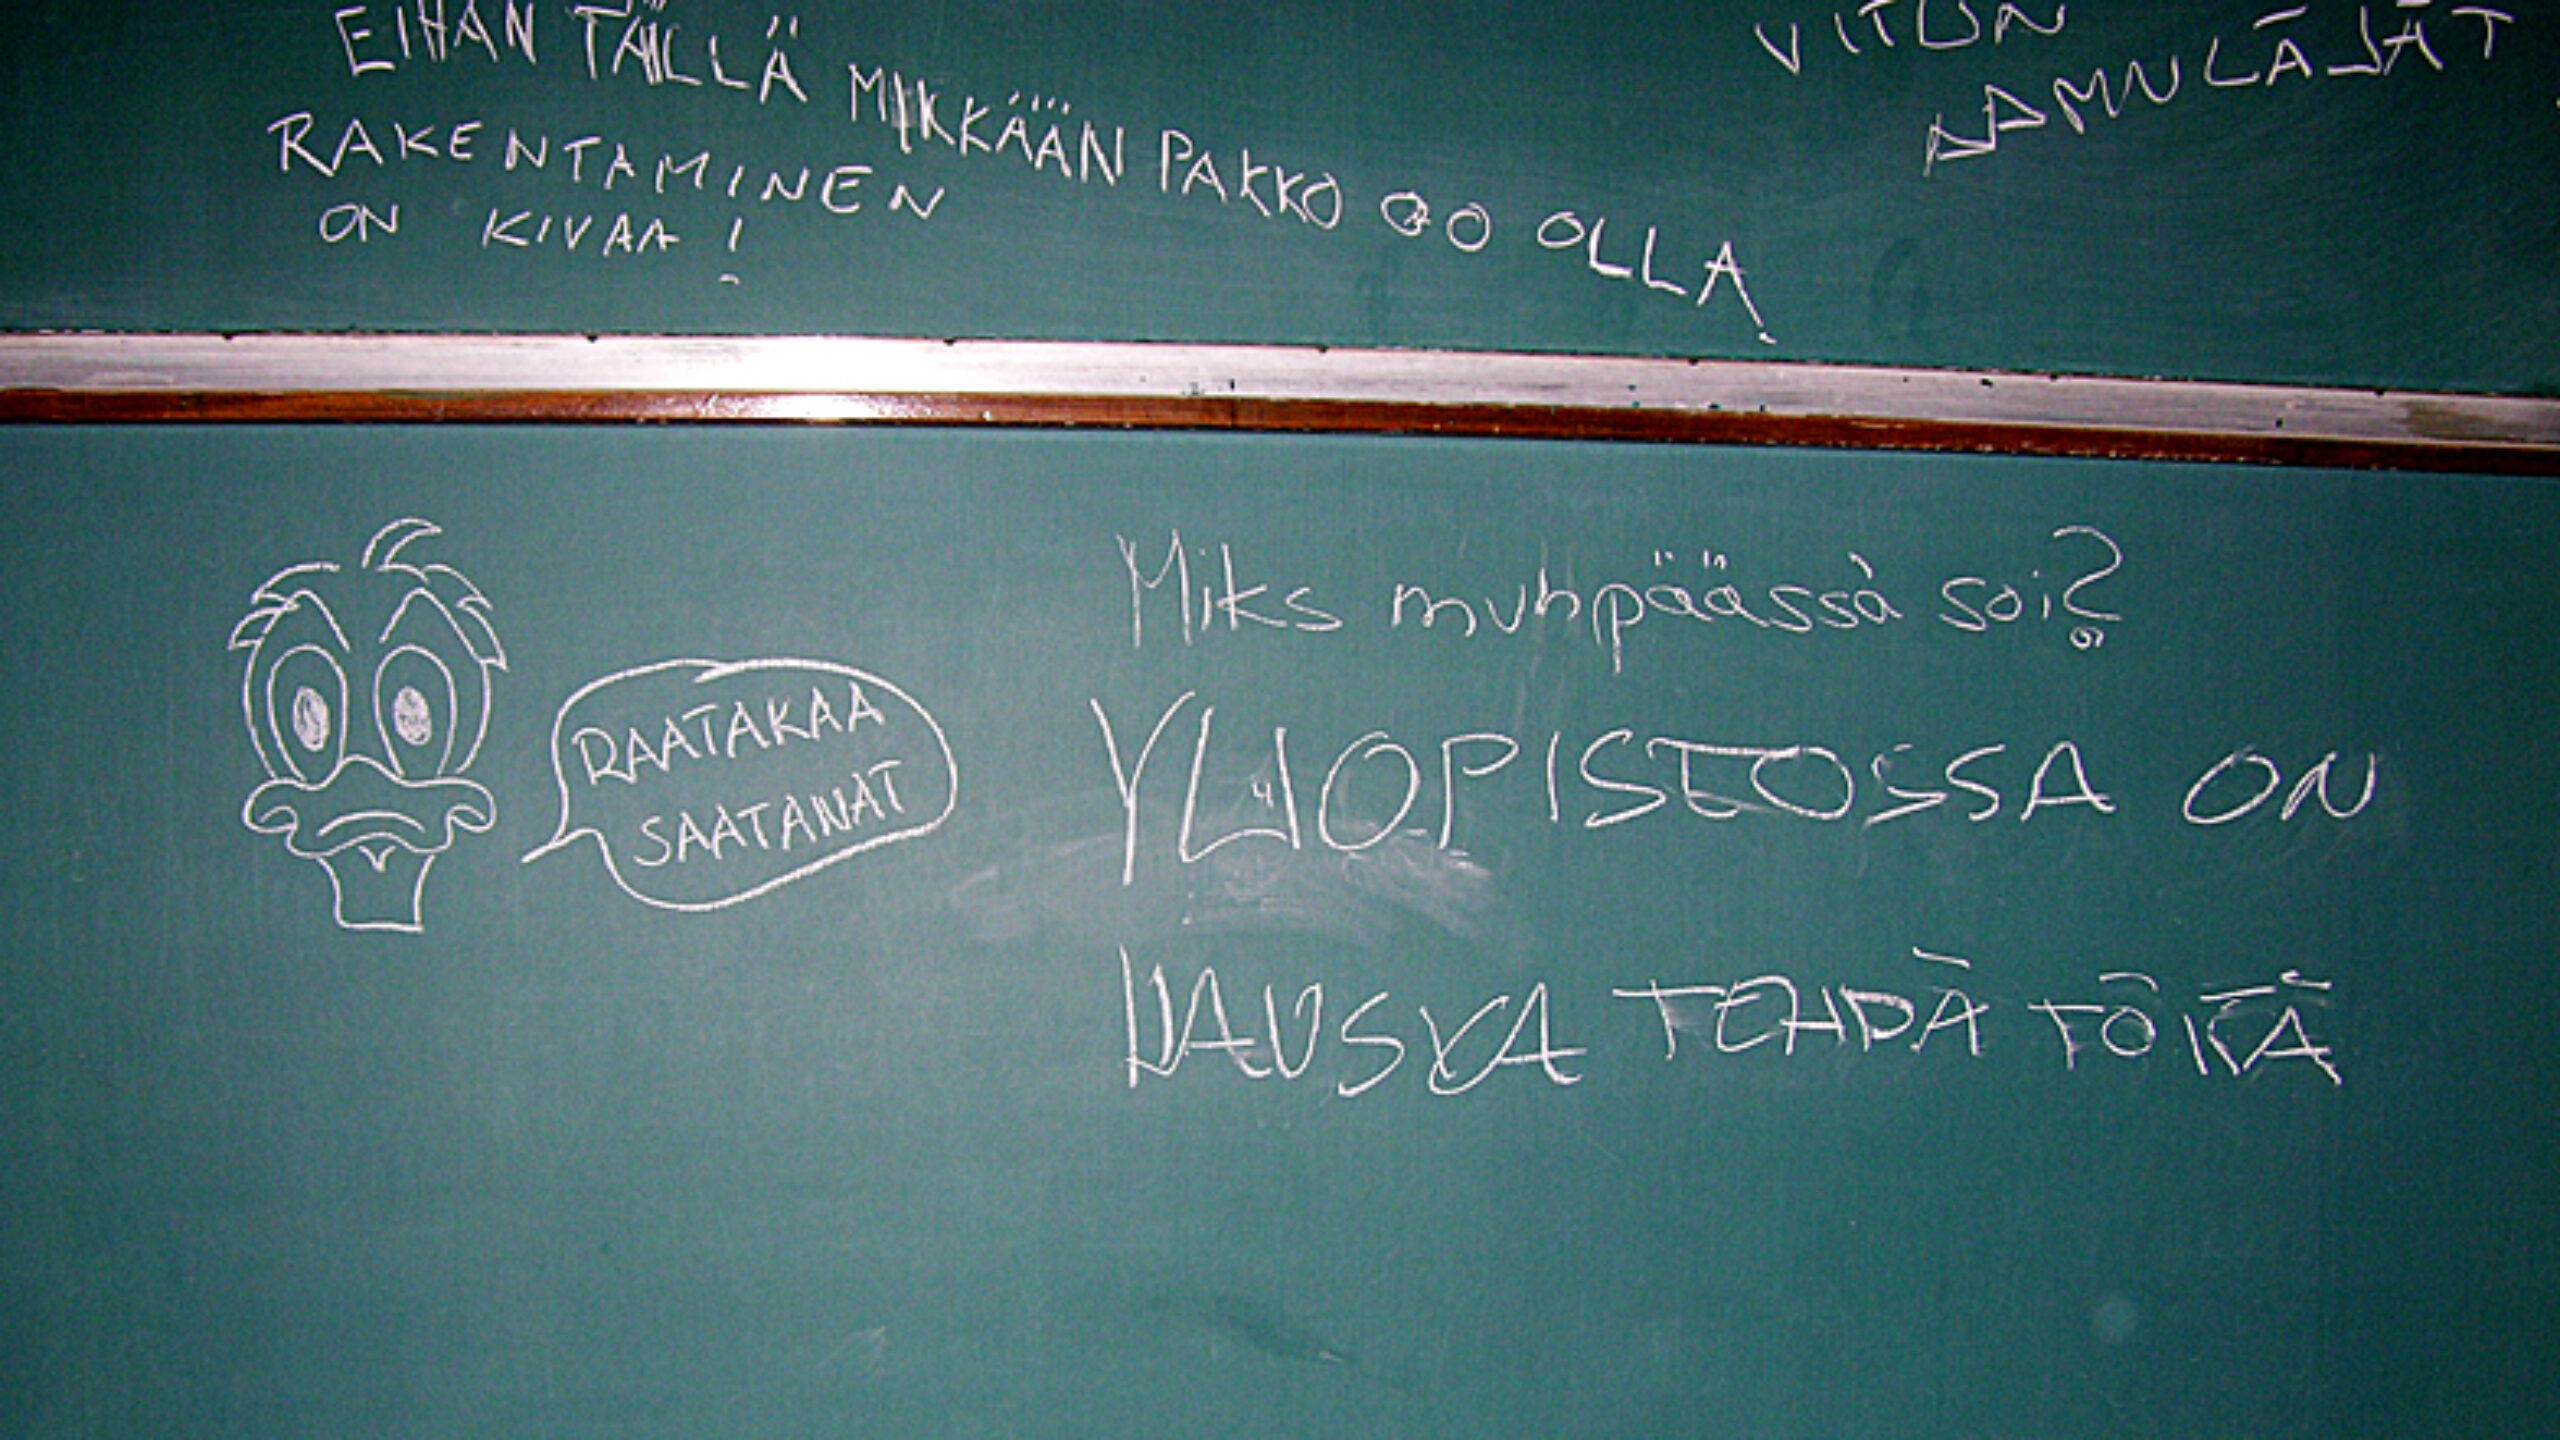 EIHÄN TÄÄLLÄ MIKKÄÄN PAKKO OO OLLA
RAKENTAMINEN
ON KIVAA!
VITUN
NAMULÄJÄT
RAATAKAA
SAATANAT
Miks muhpäässä soi?
YLIOPISTOSSA ON
HAUSKA TEHDÄ TÖITÄ